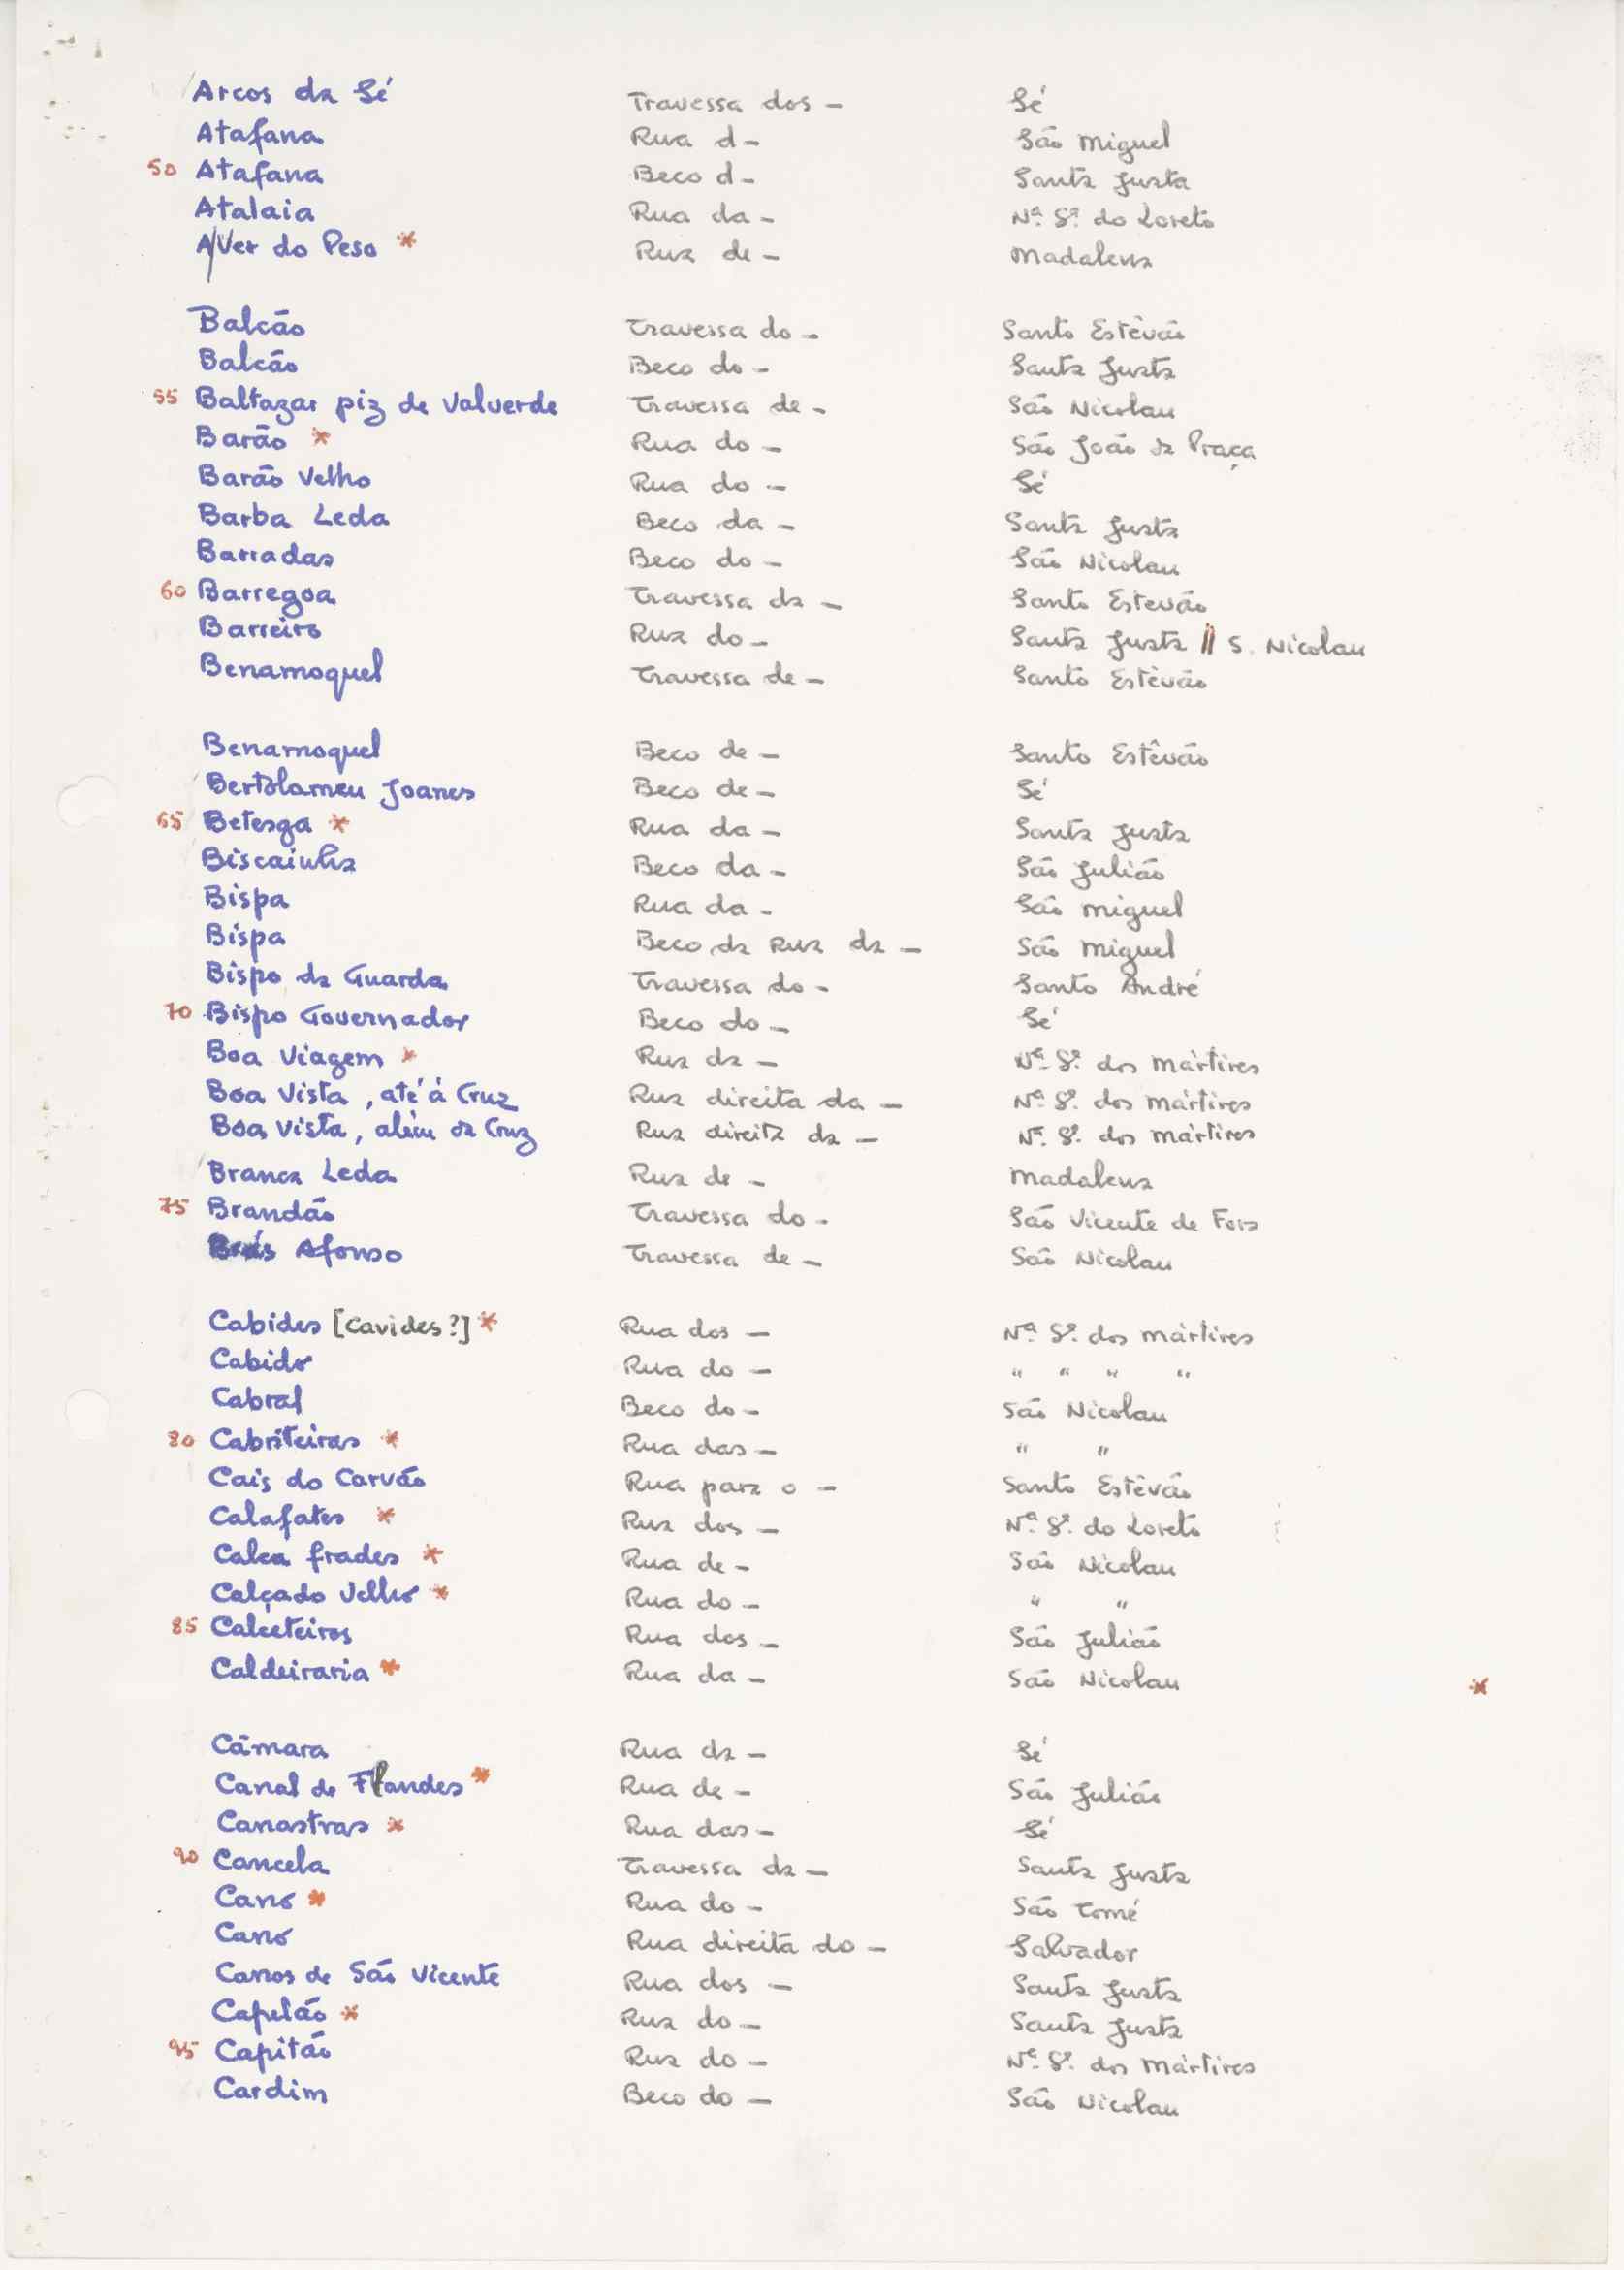 Arcos da Sé Travessa dos - Sé
Atafana Rua d- São Miguel
50 Atafana Beco d- Santa Justa
Atalaia Rua da - Nª Sª do Loreto
A/Ver do Peso * Rua de - Madalena
Balcão Travessa do - Santo Estêvão
Balcão Beco do - Santa Justa
55 Baltazar piz de Valverde Travessa de - São Nicolau
Barão * Rua do - São João da Praça
Barão Velho Rua do - Sé
Barba Leda Beco da - Santa Justa
Barradas Beco do - São Nicolau
60 Barregoa Travessa da - Santo Estevão
Barreiro Rua do - Santa Justa || S. Nicolau
Benamoquel Travessa de - Santo Estêvão
Benamoquel Beco de - Santo Estêvão
Bertolameu Joanes Beco de - Sé
65 Betesga * Rua da - Santa Justa
Biscainha Beco da - São Julião
Bispa Rua da - São Miguel
Bispa Beco da Rua da - São Miguel
Bispo da Guarda Travessa do - Santo André
70 Bispo Governador Beco do - Sé
Boa Viagem * Rua da - Nª Sª dos Mártires
Boa Vista, até à Cruz Rua direita da - Nª Sª dos Mártires
Boa Vista, além da Cruz Rua direita da - Nª Sª dos Mártires
Branca Leda Rua de - Madalena
75 Brandão Travessa do - São Vicente de Fora
Brás Afonso Travessa de - São Nicolau
Cabides [Cavides?] * Rua dos - Nª Sª dos Mártires
Cabido Rua do - " " " "
Cabral Beco do - São Nicolau
80 Cabriteiras * Rua das - " "
Cais do Carvão Rua para o - Santo Estêvão
Calafates * Rua dos - Nª Sª do Loreto
Calca frades * Rua de - São Nicolau
Calçado Velho * Rua do - " "
85 Calceteiros Rua dos - São Julião
Caldeiraria * Rua da - São Nicolau *
Câmara Rua da - Sé
Canal de Flandes * Rua de - São Julião
Canastras * Rua das - Sé
90 Cancela Travessa da - Santa Justa
Cano * Rua do - São Tomé
Cano Rua direita do - Salvador
Canos de São Vicente Rua dos - Santa Justa
Capelão * Rua do - Santa Justa
95 Capitão Rua do - Nª Sª dos Mártires
Cardim Beco do - São Nicolau